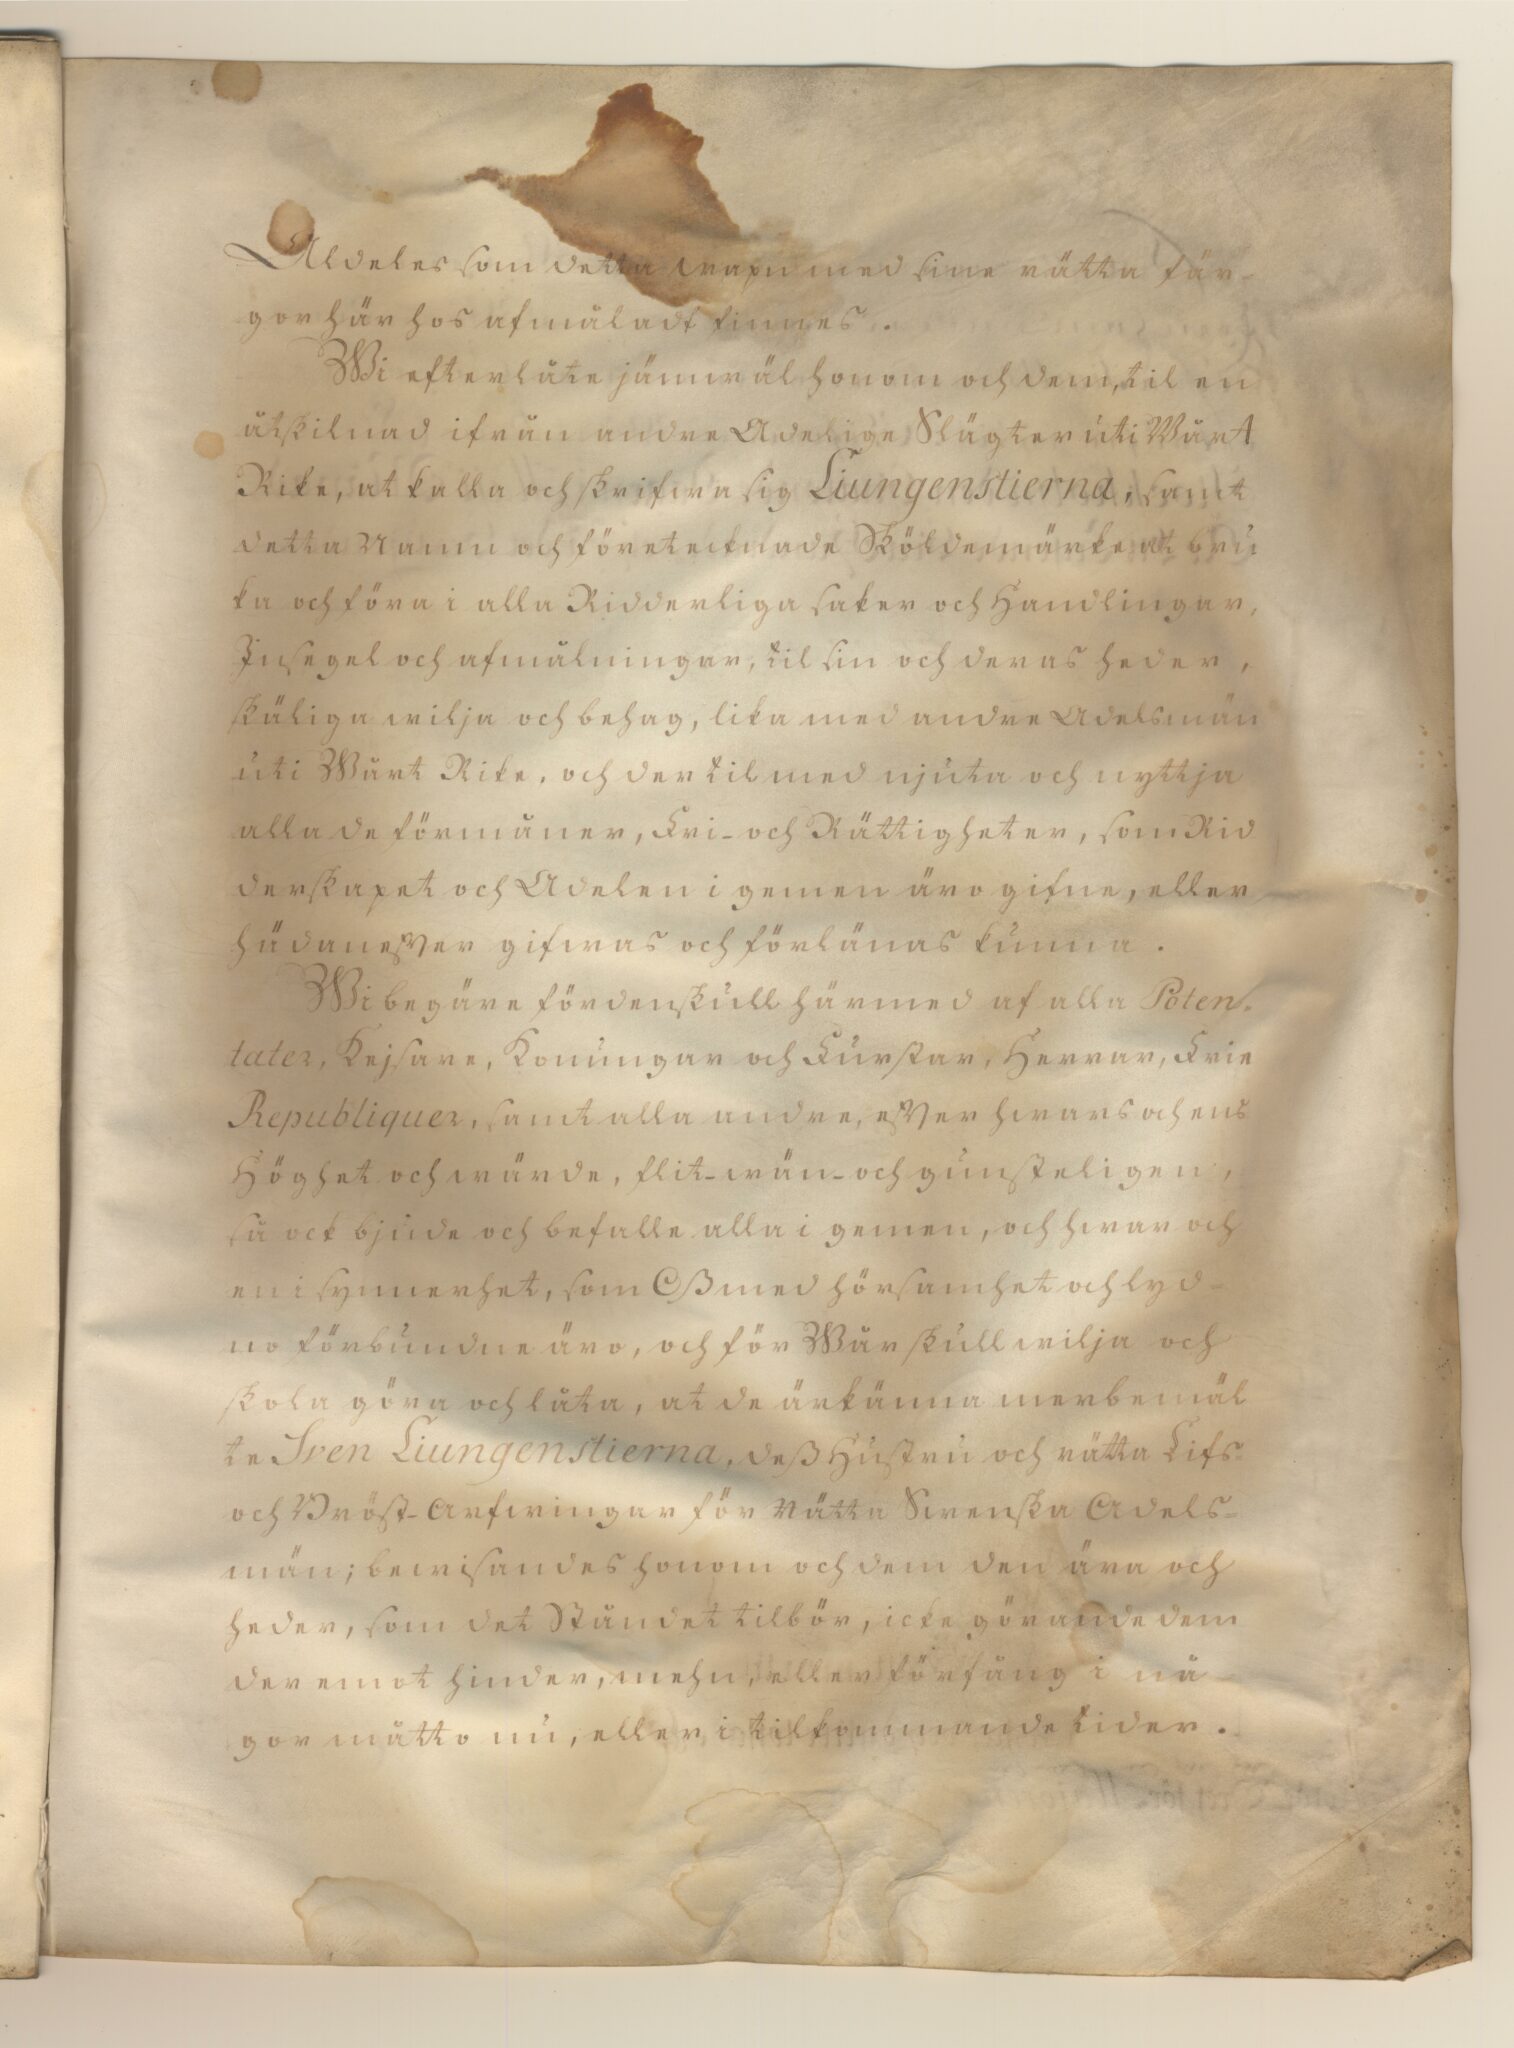 Aldeles som detta wapn med sine rätta fär-
gor här hos afmåladt finnes.
Wi efterlåte jämwäl honom och dem, til en
åtskilnad ifrån andre Adelige Slägter uti Wårt
Rike, at kalla och skrifwa sig Liungenstierna, samt
detta Namn och företecknade Sköldemärke at bru
ka och föra i alla Ridderliga saker och Handlingar,
Insegel och afmålningar, til sin och deras heder,
skäliga wilja och behag, lika med andre Adelsmän
uti Wårt Rike, och der til med njuta och nyttja
alla de förmåner, Fri- och Rättigheter, som Rid
derskapet och Adelen i gemen äro gifne, eller
hädanefter gifwas och förlänas kunna.
Wi begäre fördenskull härmed af alla Poten-
tater, Kejsare, Konungar och Furstar, Herrar, Frie
Republiquer, samt alla andre, efter hwars och ens
Höghet och wärde, flit- wän- och gunsteligen,
så ock bjude och befalle alla i gemen, och hwar och
en i synnerhet, som Oß med hörsamhet och lyd-
no förbundne äro, och för Wår skull wilja och
skola göra och låta, at de ärkänna merbemäl
te Sven Liungenstierna, deß Hustru och rätta Lifs-
och Bröst-Arfwingar för Rätta Swenska Adels-
män; bewisandes honom och dem den ära och
heder, som det Ståndet tilbör, icke görande dem
deremot hinder, mehn, eller förfång i nå-
gor måtto nu, eller i tilkommande tider.